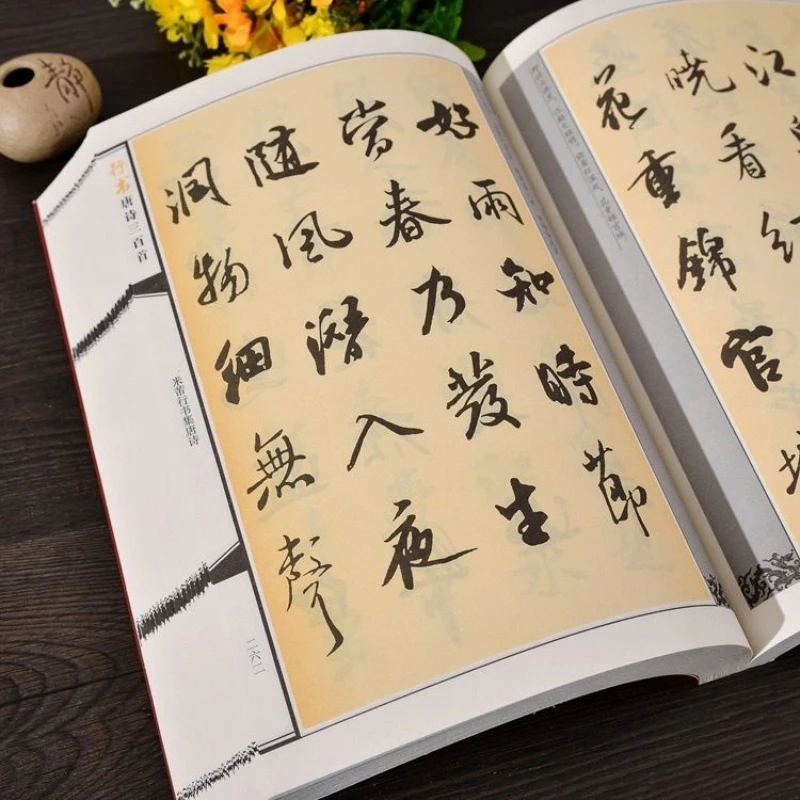 江
曉看紅
花重錦官城
好雨知時節
當春乃發生
隨風潛入夜
潤物細無聲
行书唐诗三百首
米芾行书集唐诗
二六二
静